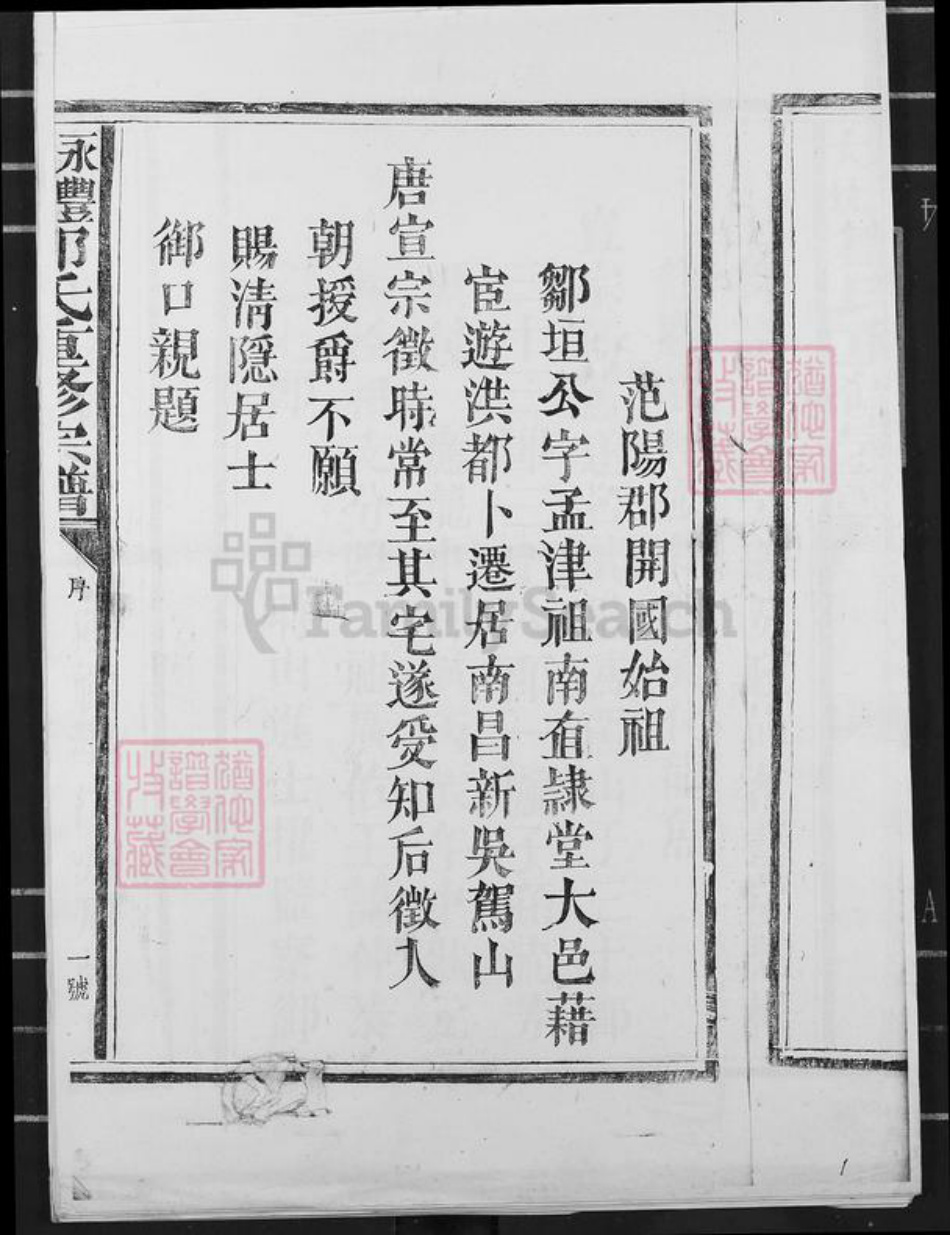 范陽郡開國始祖
鄒垣公字孟津祖南直隷堂大邑藉
宦遊洪都卜遷居南昌新吳駕山
唐宣宗微時常至其宅遂受知后徵入
朝授爵不願
賜淸隱居士
御口親題
永豐鄒氏重修宗譜
序
一號
FamilySearch
猶他家
譜學會
收藏
猶他家
譜學會
收藏
A
1